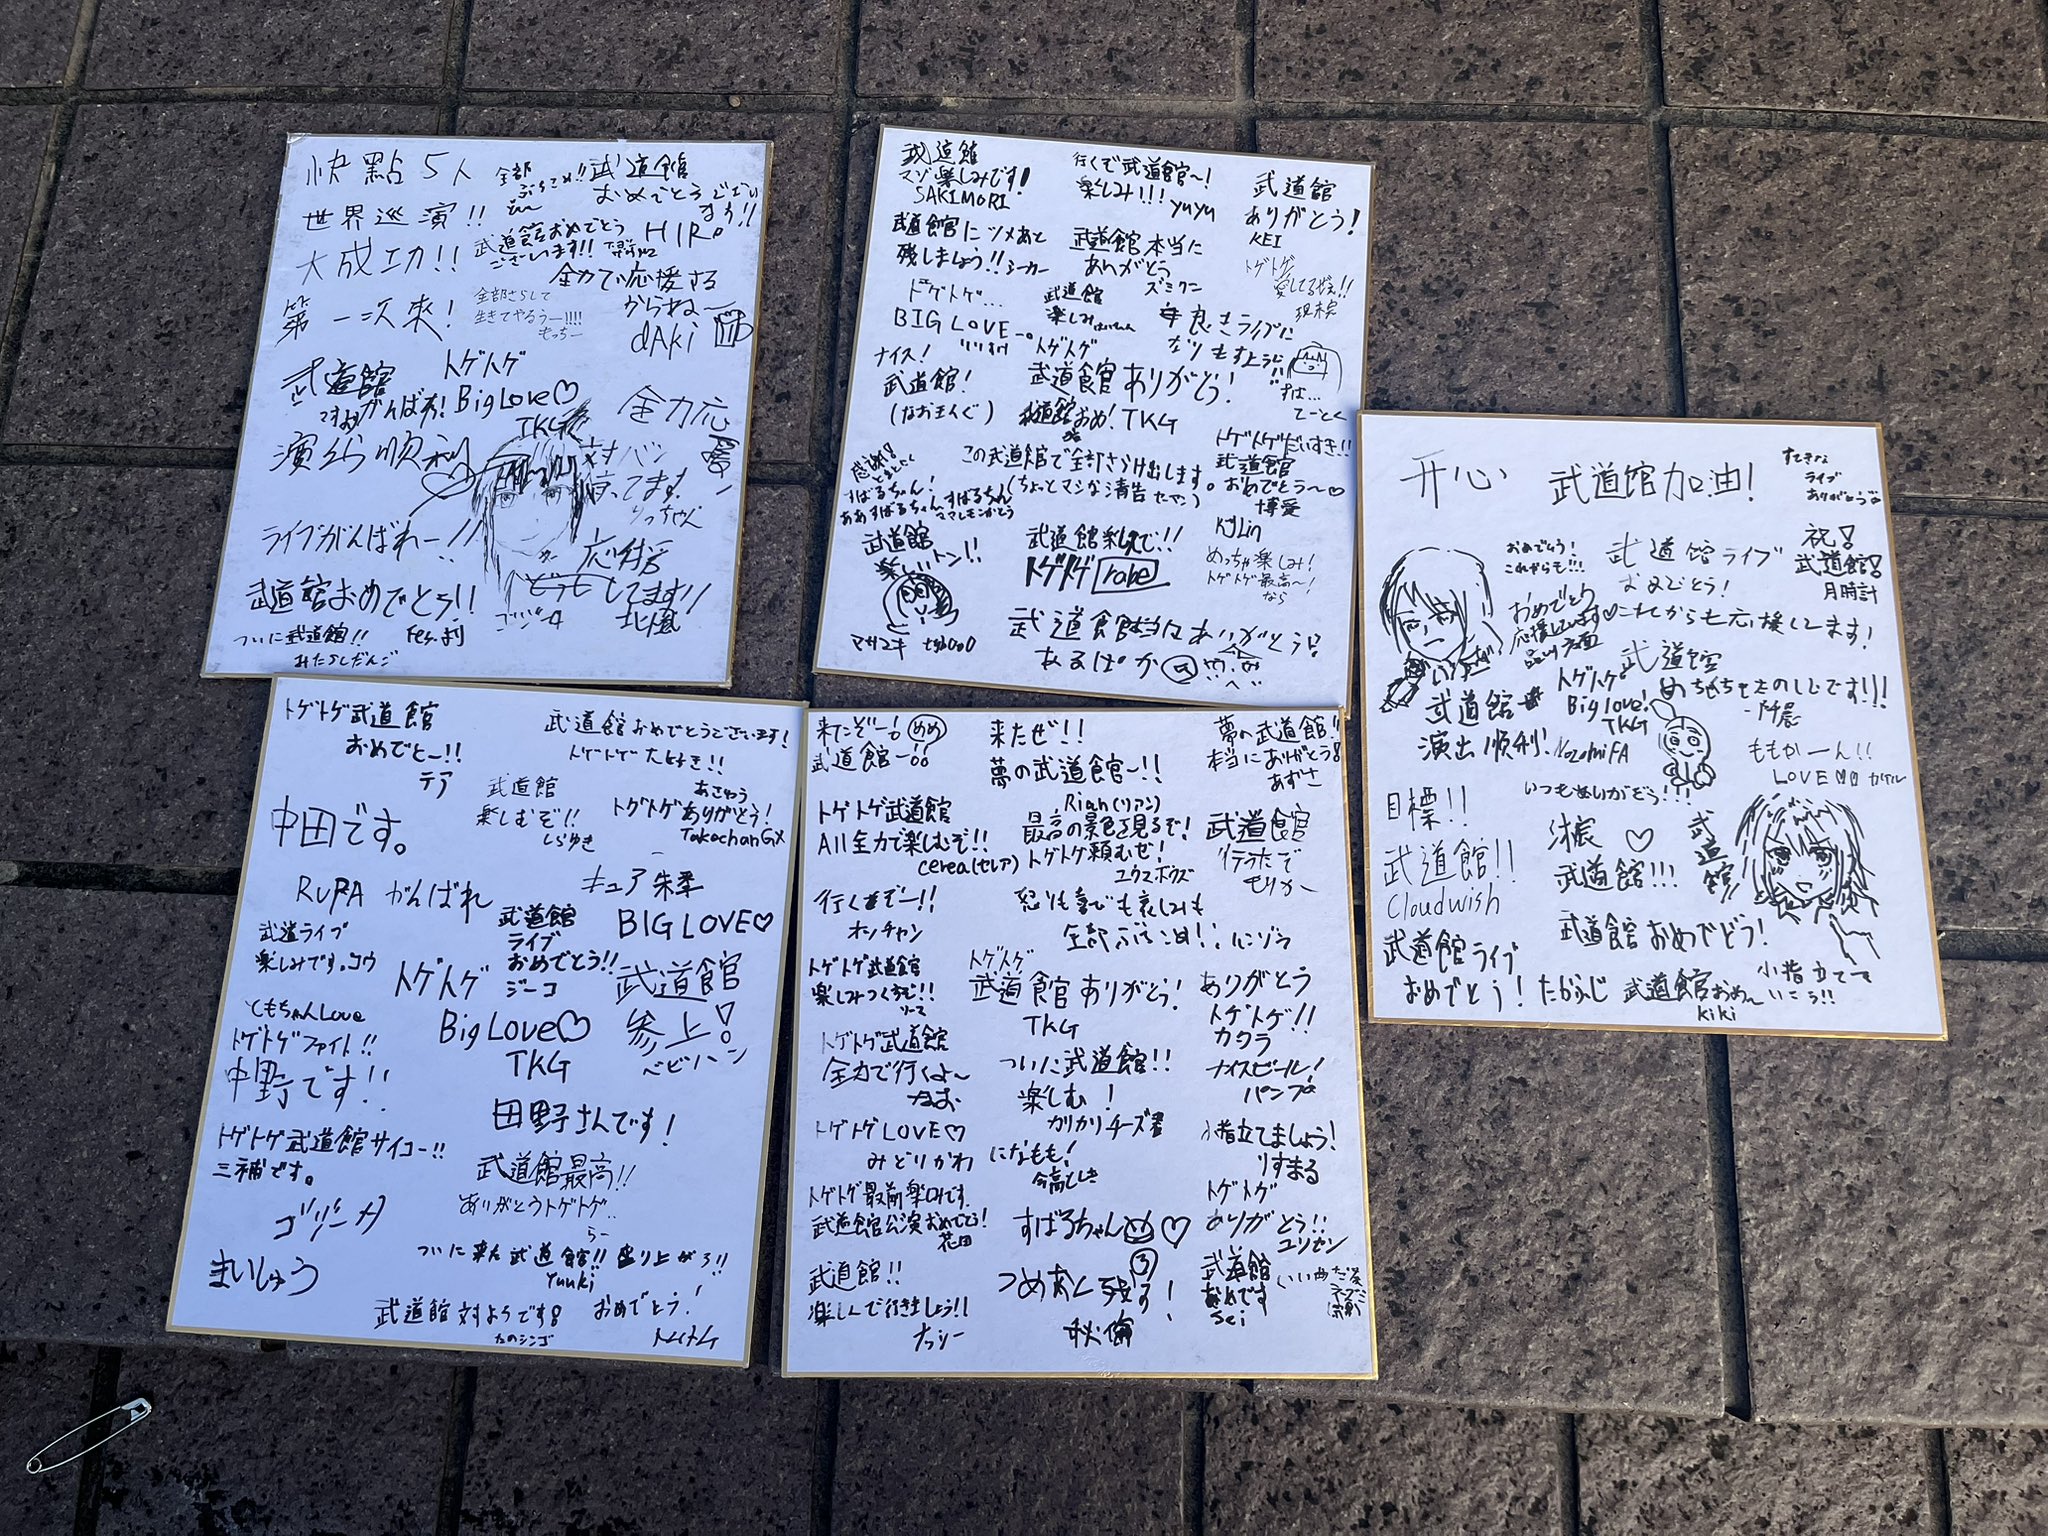 快點5人
世界巡演!!
大成功!!
第一次来!
全部
ぶちこめ!!
武道館
おめでとうござい
ます!!
HIRO
武道館おめでとう
ございます!!
全力で応援する
からね〜
dAki
全部さらして
生きてやるうー!!!!
もっちー
武道館
がんばれ!
トゲトゲ
Big Love♡
TKG
全力応援
演出順利
対バン
待ってます!
りっちゃん
ライブがんばれー!!
応援
してます!!
北風
武道館おめでとう!!
ついに武道館!!
みたらしだんご
武道館
マヂ楽しみです!
SAKIMORI
行くで武道館〜!
楽しみ!!!
yuyu
武道館
ありがとう!
KEI
武道館にツメあと
残しましょう!!シーカー
武道館本当に
ありがとう
ズミクニ
トゲトゲ
愛してるぜぇ!!
トゲトゲ...
BIG LOVE
武道館
楽しみ
良きライブに
なりますように
ナイス!
武道館!
(なおまんぐ)
トゲトゲ
武道館ありがとう!
武道館おめ!TKG
すば...
てーとく
この武道館で全部さらけ出します。
(ちょっとマシな清告セブン)
トゲトゲだいすき!!
武道館
おめでとう〜♡
博愛
感謝!
すばるちゃん!
ああすばるちゃん、すばるちゃん
ママレモンがとう
武道館
楽しいトン!!
マサユキ
武道館楽しんで!!
トゲトゲ
robe
Kylin
めっちゃ楽しみ!
トゲトゲ最高〜!
なら
武道館本当にありがとう!
あるぱか
开心
武道館加油!
すてきな
ライブ
ありがとう
祝!
武道館!
月時計
おめでとう!
これからも!!!
武道館ライブ
おめでとう!
おめでとう
応援しています
♡これからも応援してます!
武道館
演出順利!
NozomiFA
トゲトゲ
Big love!
TKG
武道館
めちゃめちゃたのしいです!!!
ももかーん!!
LOVE♡♡
いつもありがとう!!!
目標!!
武道館!!
Cloudwish
♡
武道館!!!
武道館
武道館ライブ
おめでとう!たかふじ
武道館おめでとう!
武道館おめ〜
kiki
小指立てて
いこう!!
トゲトゲ武道館
おめでとー!!
テア
武道館おめでとうございます!
トゲトゲ大好き!!
武道館
楽しむぞ!!
しらゆき
あさゆう
トゲトゲありがとう!
TakachanGX
中田です。
キュア朱華
RUPA がんばれ
BIG LOVE♡
武道ライブ
楽しみです。コウ
武道館
ライブ
おめでとう!!
ジーコ
ともちゃんLove
トゲトゲファイト!!
トゲトゲ
Big Love♡
TKG
武道館
参上!
ベビハン
中野です!!
田野さんです!
トゲトゲ武道館サイコー!!
三補です。
武道館最高!!
ありがとうトゲトゲ..
らー
ゴリーメ
まいしゅう
ついに来た武道館!!盛り上がろ!!
Yuuki
武道館対ようです!
たのシンゴ
おめでとう!
来たぞー!
めめ
武道館ー!!
来たぜ!!
夢の武道館ー!!
Rian(リアン)
夢の武道館!!
本当にありがとう!
あずさ
トゲトゲ武道館
All全力で楽しむぞ!!
cerea(セレア)
最高の景色を見るぞ!
トゲトゲ頼むぜ!
ユウマボウズ
武道館
行ったで
もりかー
行くぞー!!
ホノチャン
怒りも喜びも哀しみも
全部ぶちこめ!!
ハンゾウ
トゲトゲ武道館
楽しみつくすぞ!!
ソース
トゲトゲ
武道館ありがとう!
TKG
ありがとう
トゲトゲ!!
カワラ
トゲトゲ武道館
全力で行くよ〜
なお
ついに武道館!!
楽しむ!
カリカリチーズ君
ナイスビール!
パンプ
トゲトゲLOVE♡
みどりかわ
になもも!
今高としき
小指立てましょう!
りすまる
トゲトゲ最前楽しみです。
武道館公演おめでとう!
花田
すばるちゃん♡
トゲトゲ
ありがとう!!
ユリセン
武道館!!
楽しんで行きましょう!!
ナッシー
つめあと残す!
秋倫
武道館
おめです
Sei